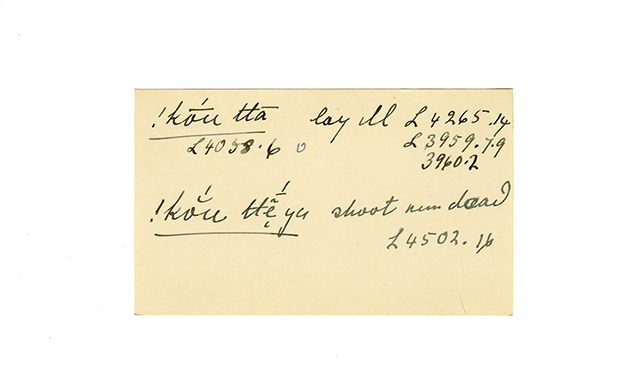 !kṓu ttā lay ill L 4265.14
L 4058.6 L 3959.7.9
3960.2
!kṓu ttḗ̃yu shoot num dead
L 4502.16